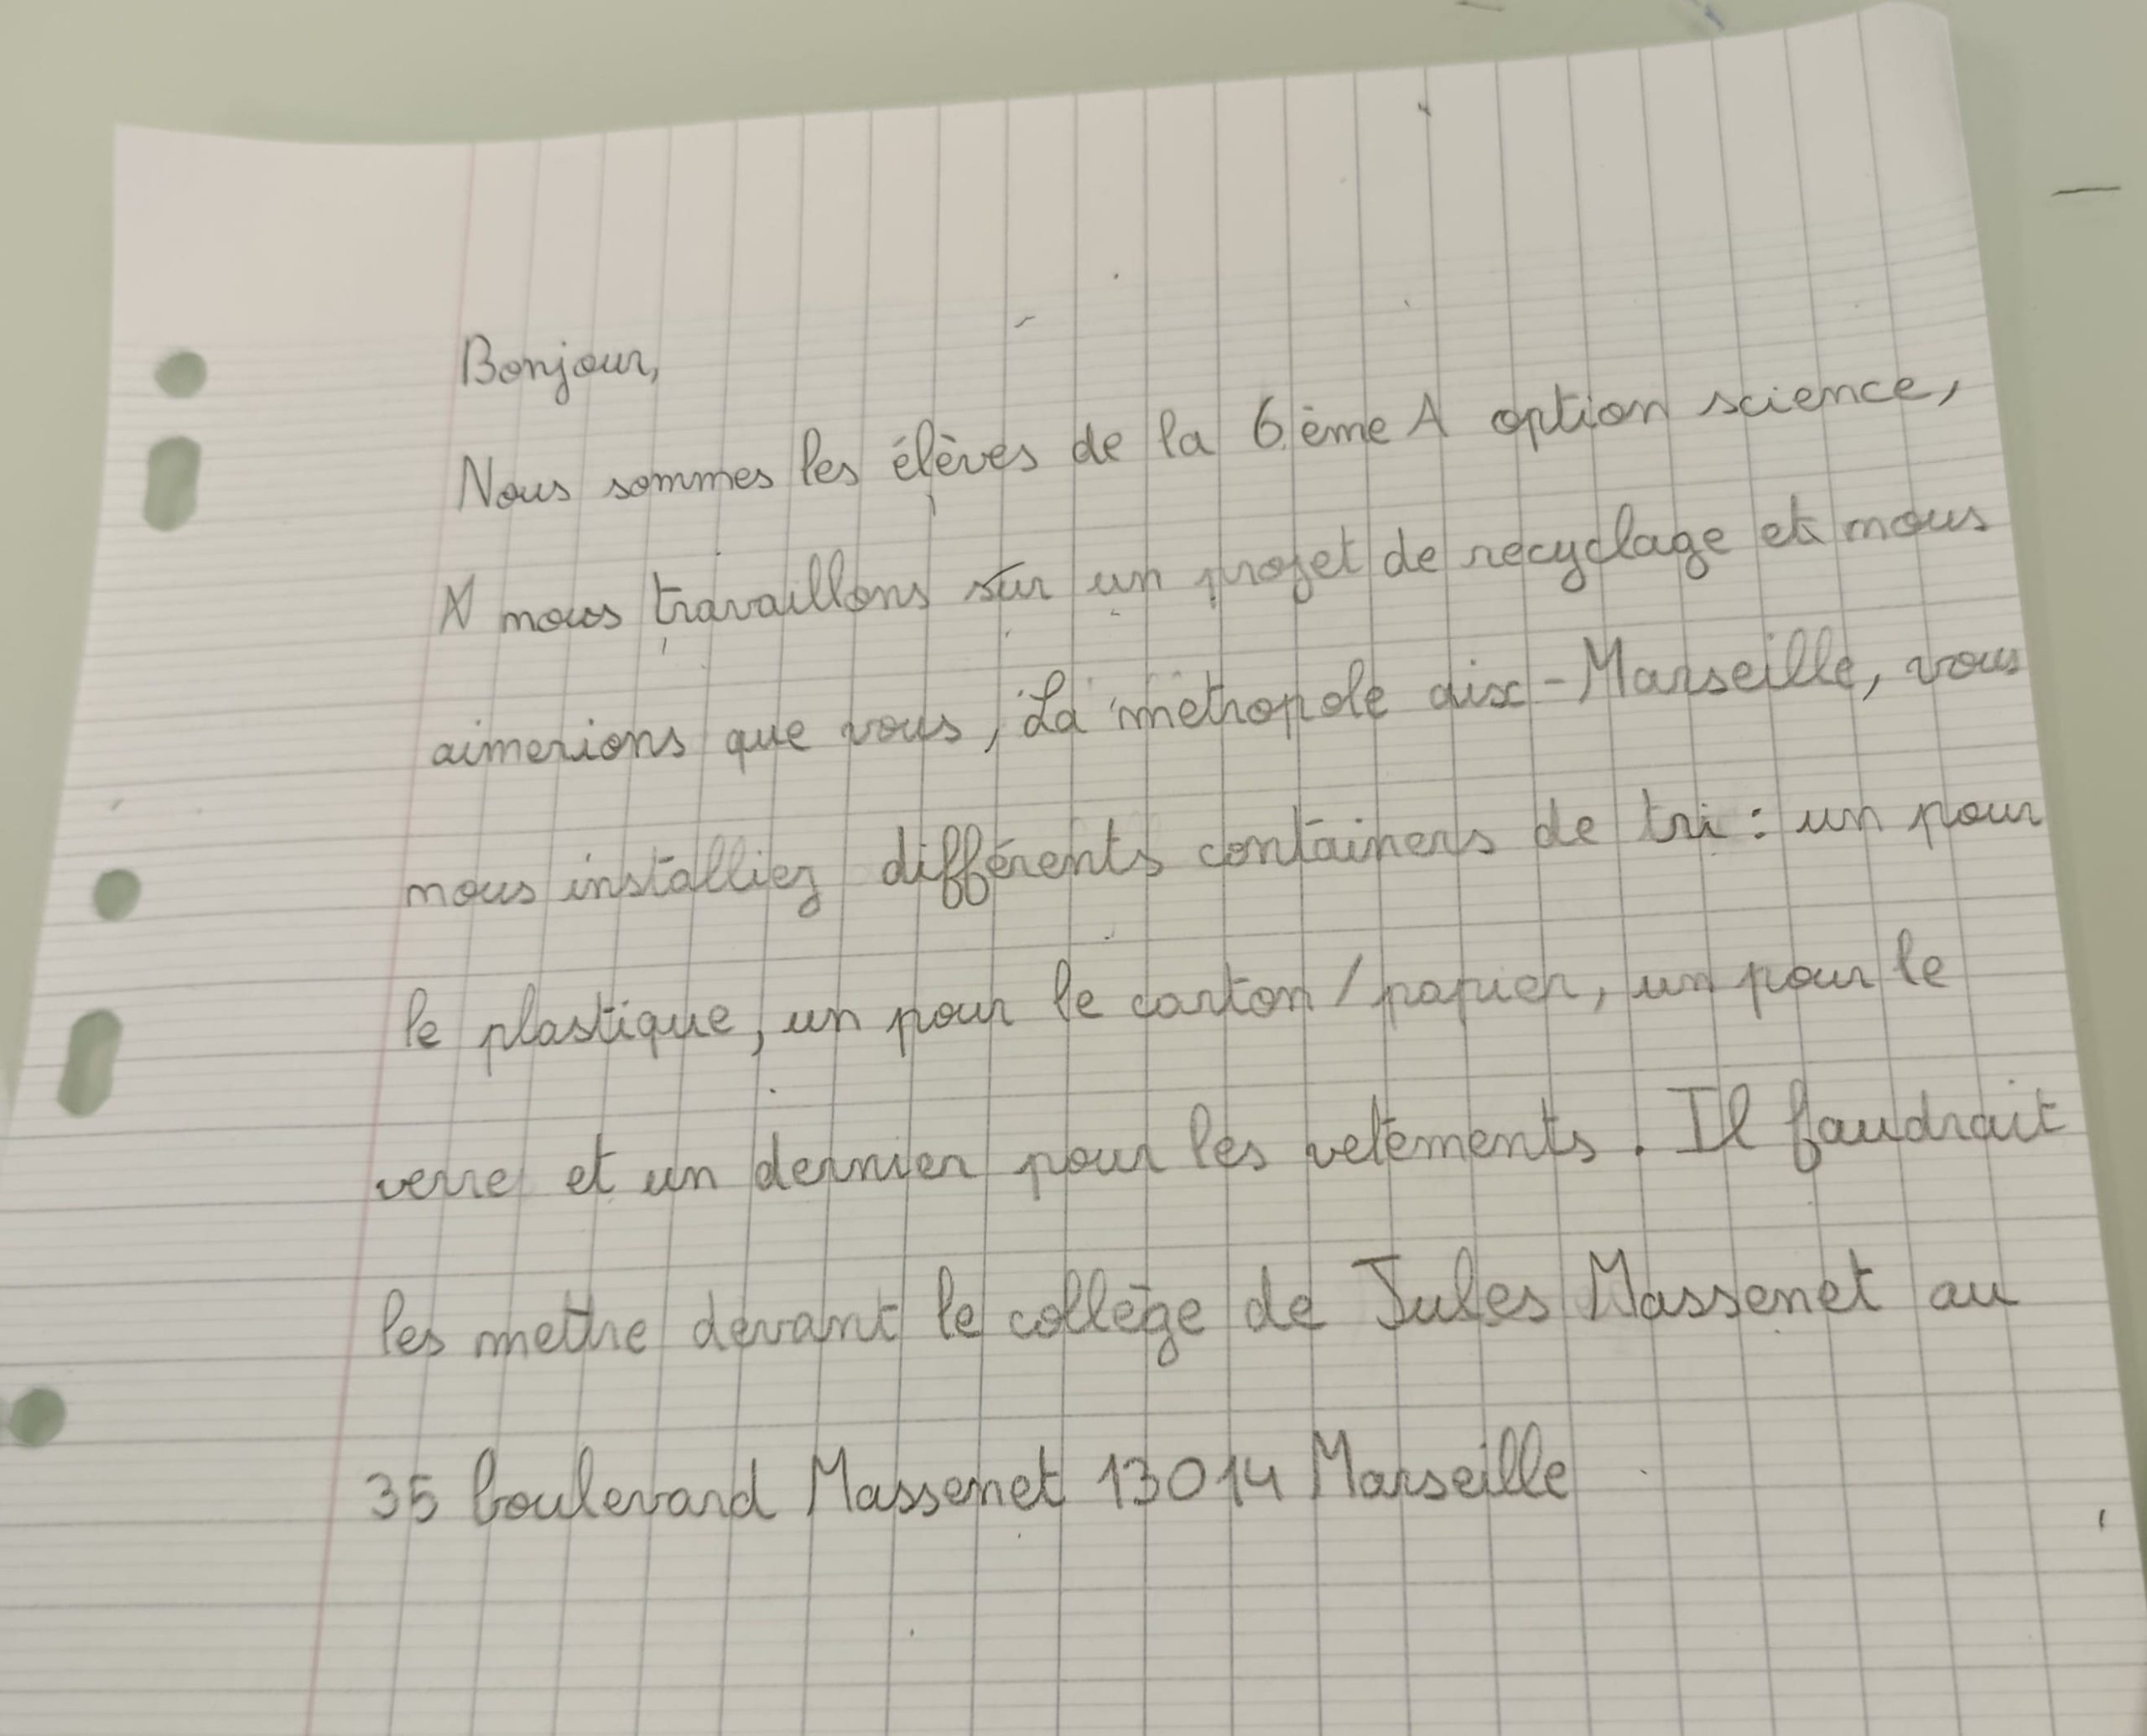 Bonjour,
Nous sommes les élèves de la 6ème A option science,
nous travaillons sur un projet de recyclage et nous
aimerions que vous, La métropole aix-Marseille, vous
nous installiez différents containers de tri : un pour
le plastique, un pour le carton / papier, un pour le
verre et un dernier pour les vetements. Il faudrait
les mettre devant le collège de Jules Massenet au
35 boulevard Massenet 13014 Marseille